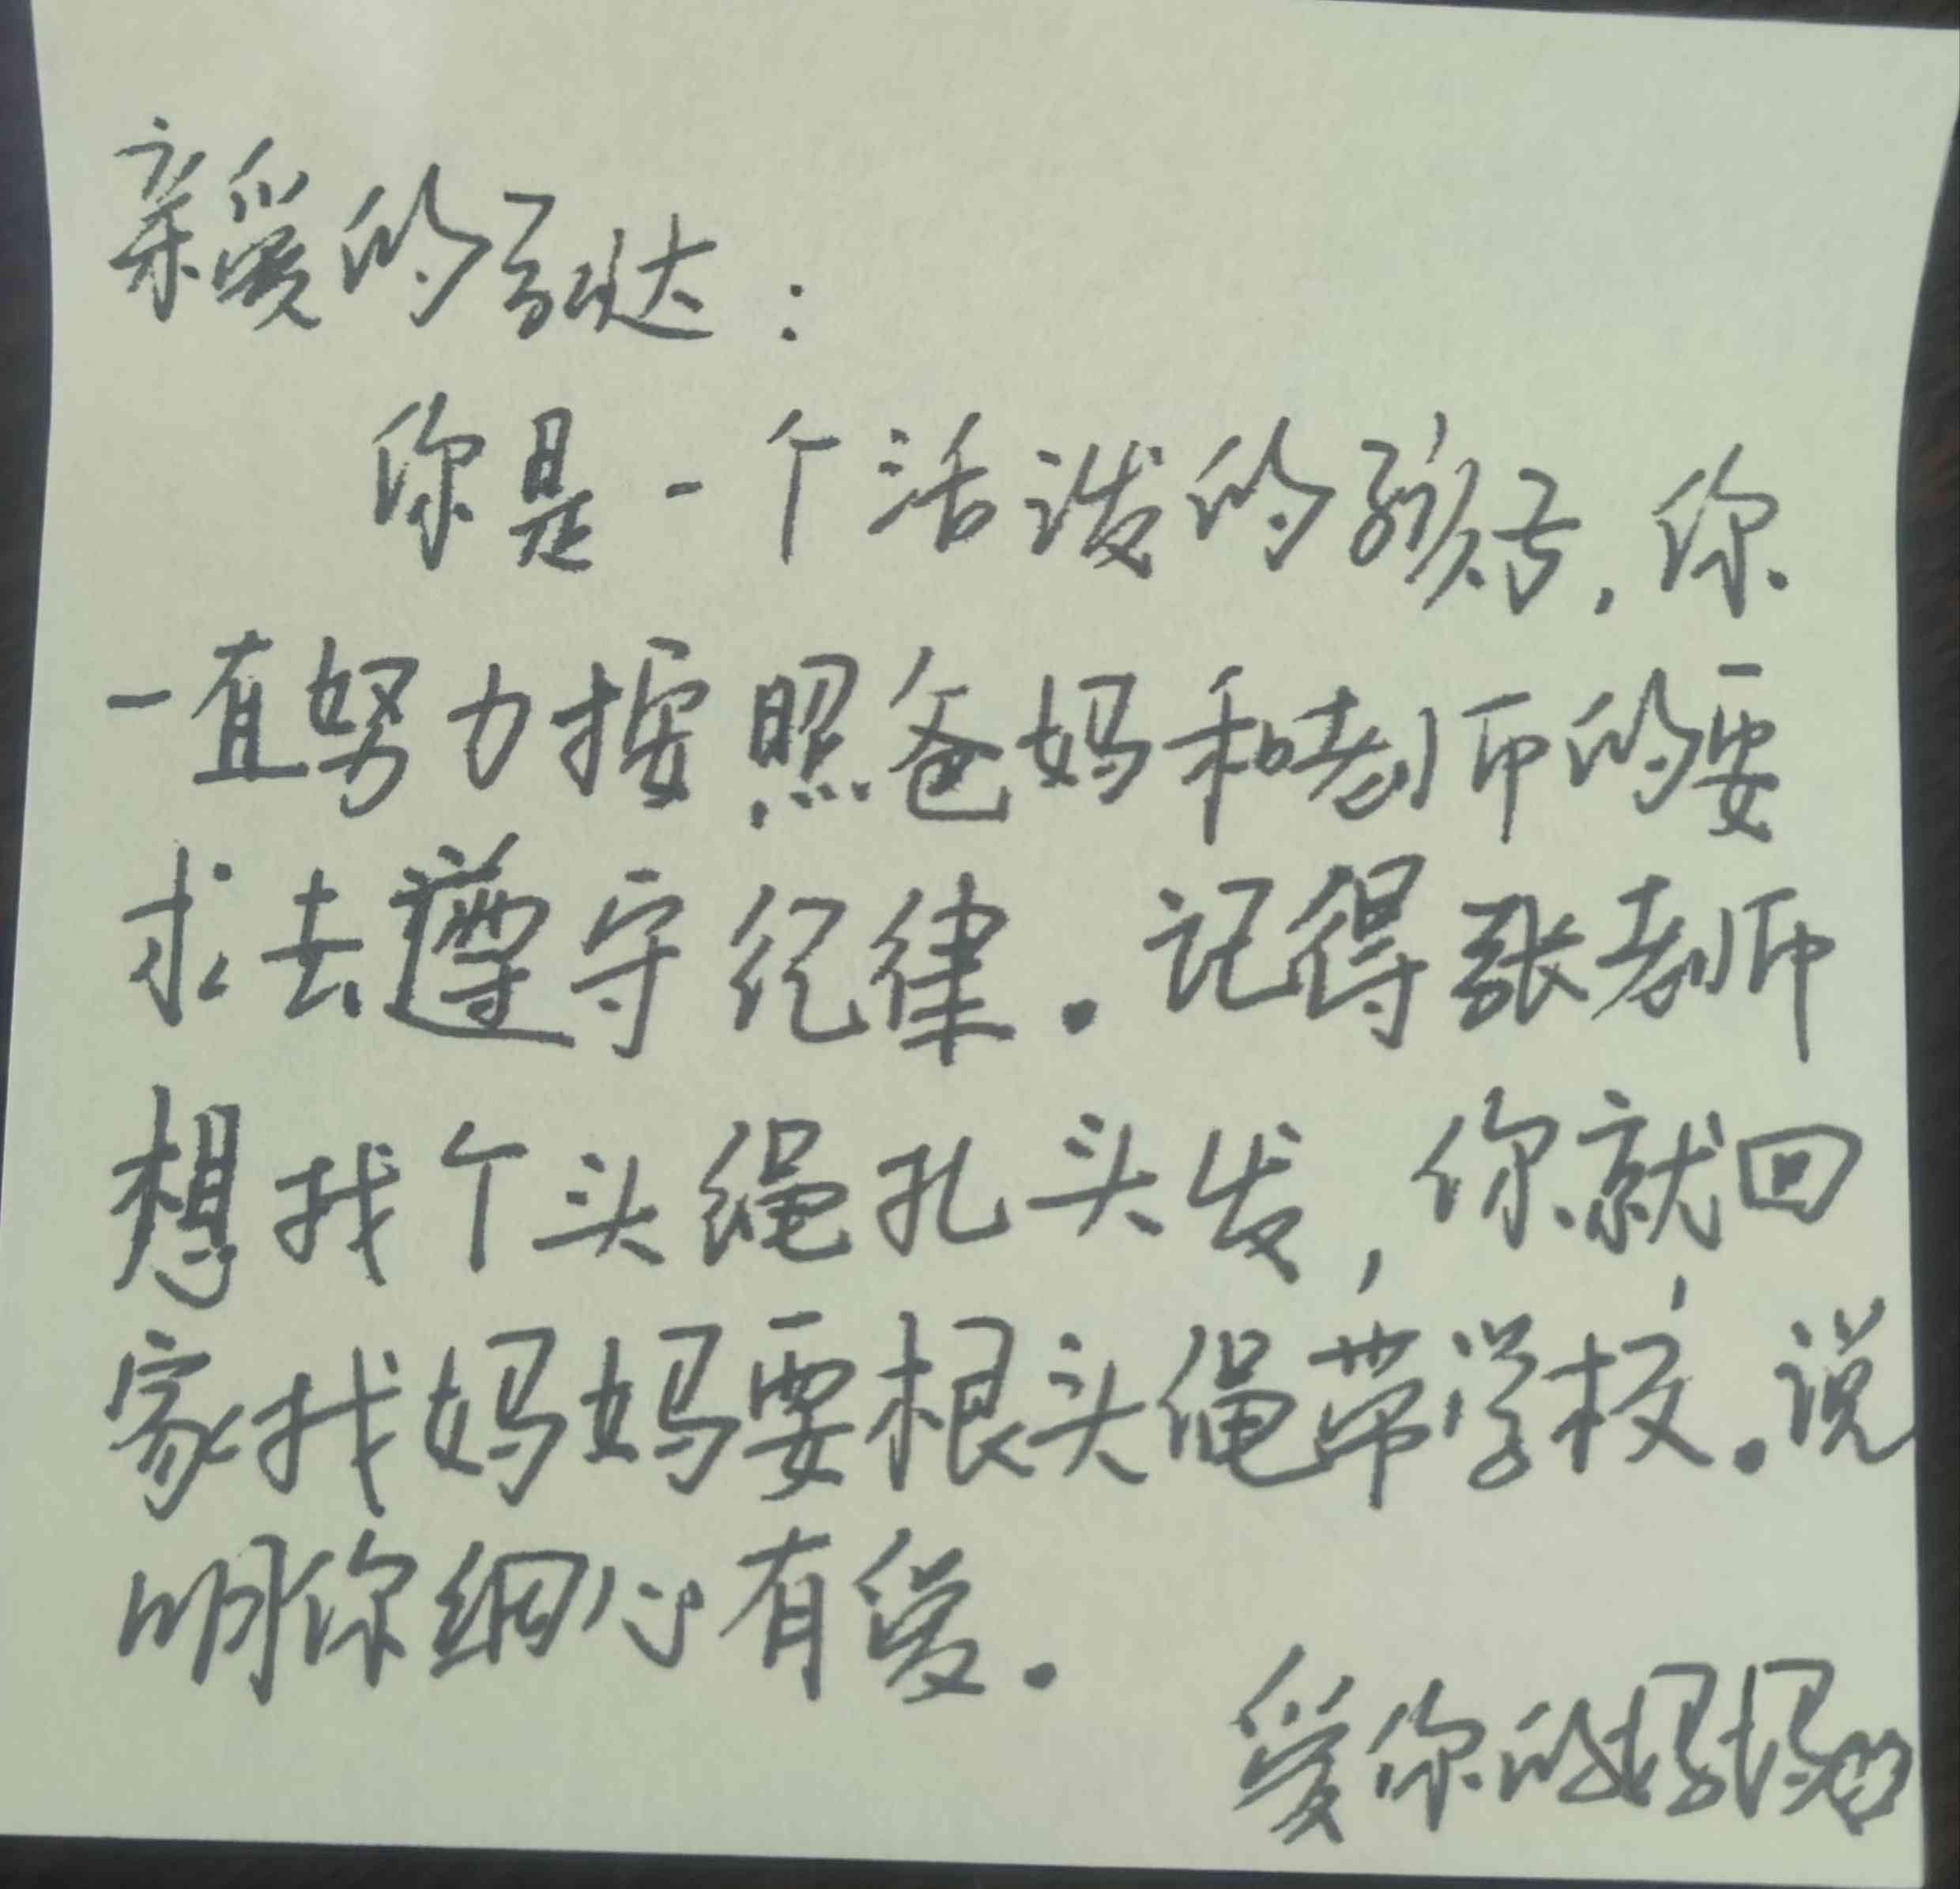 亲爱的达：
你是一个活泼的孩子，你
一直努力按照爸妈和老师的要
求去遵守纪律。记得张老师
想找个头绳扎头发，你就回
家找妈妈要根头绳带学校。说
明你细心有爱。
爱你的妈妈